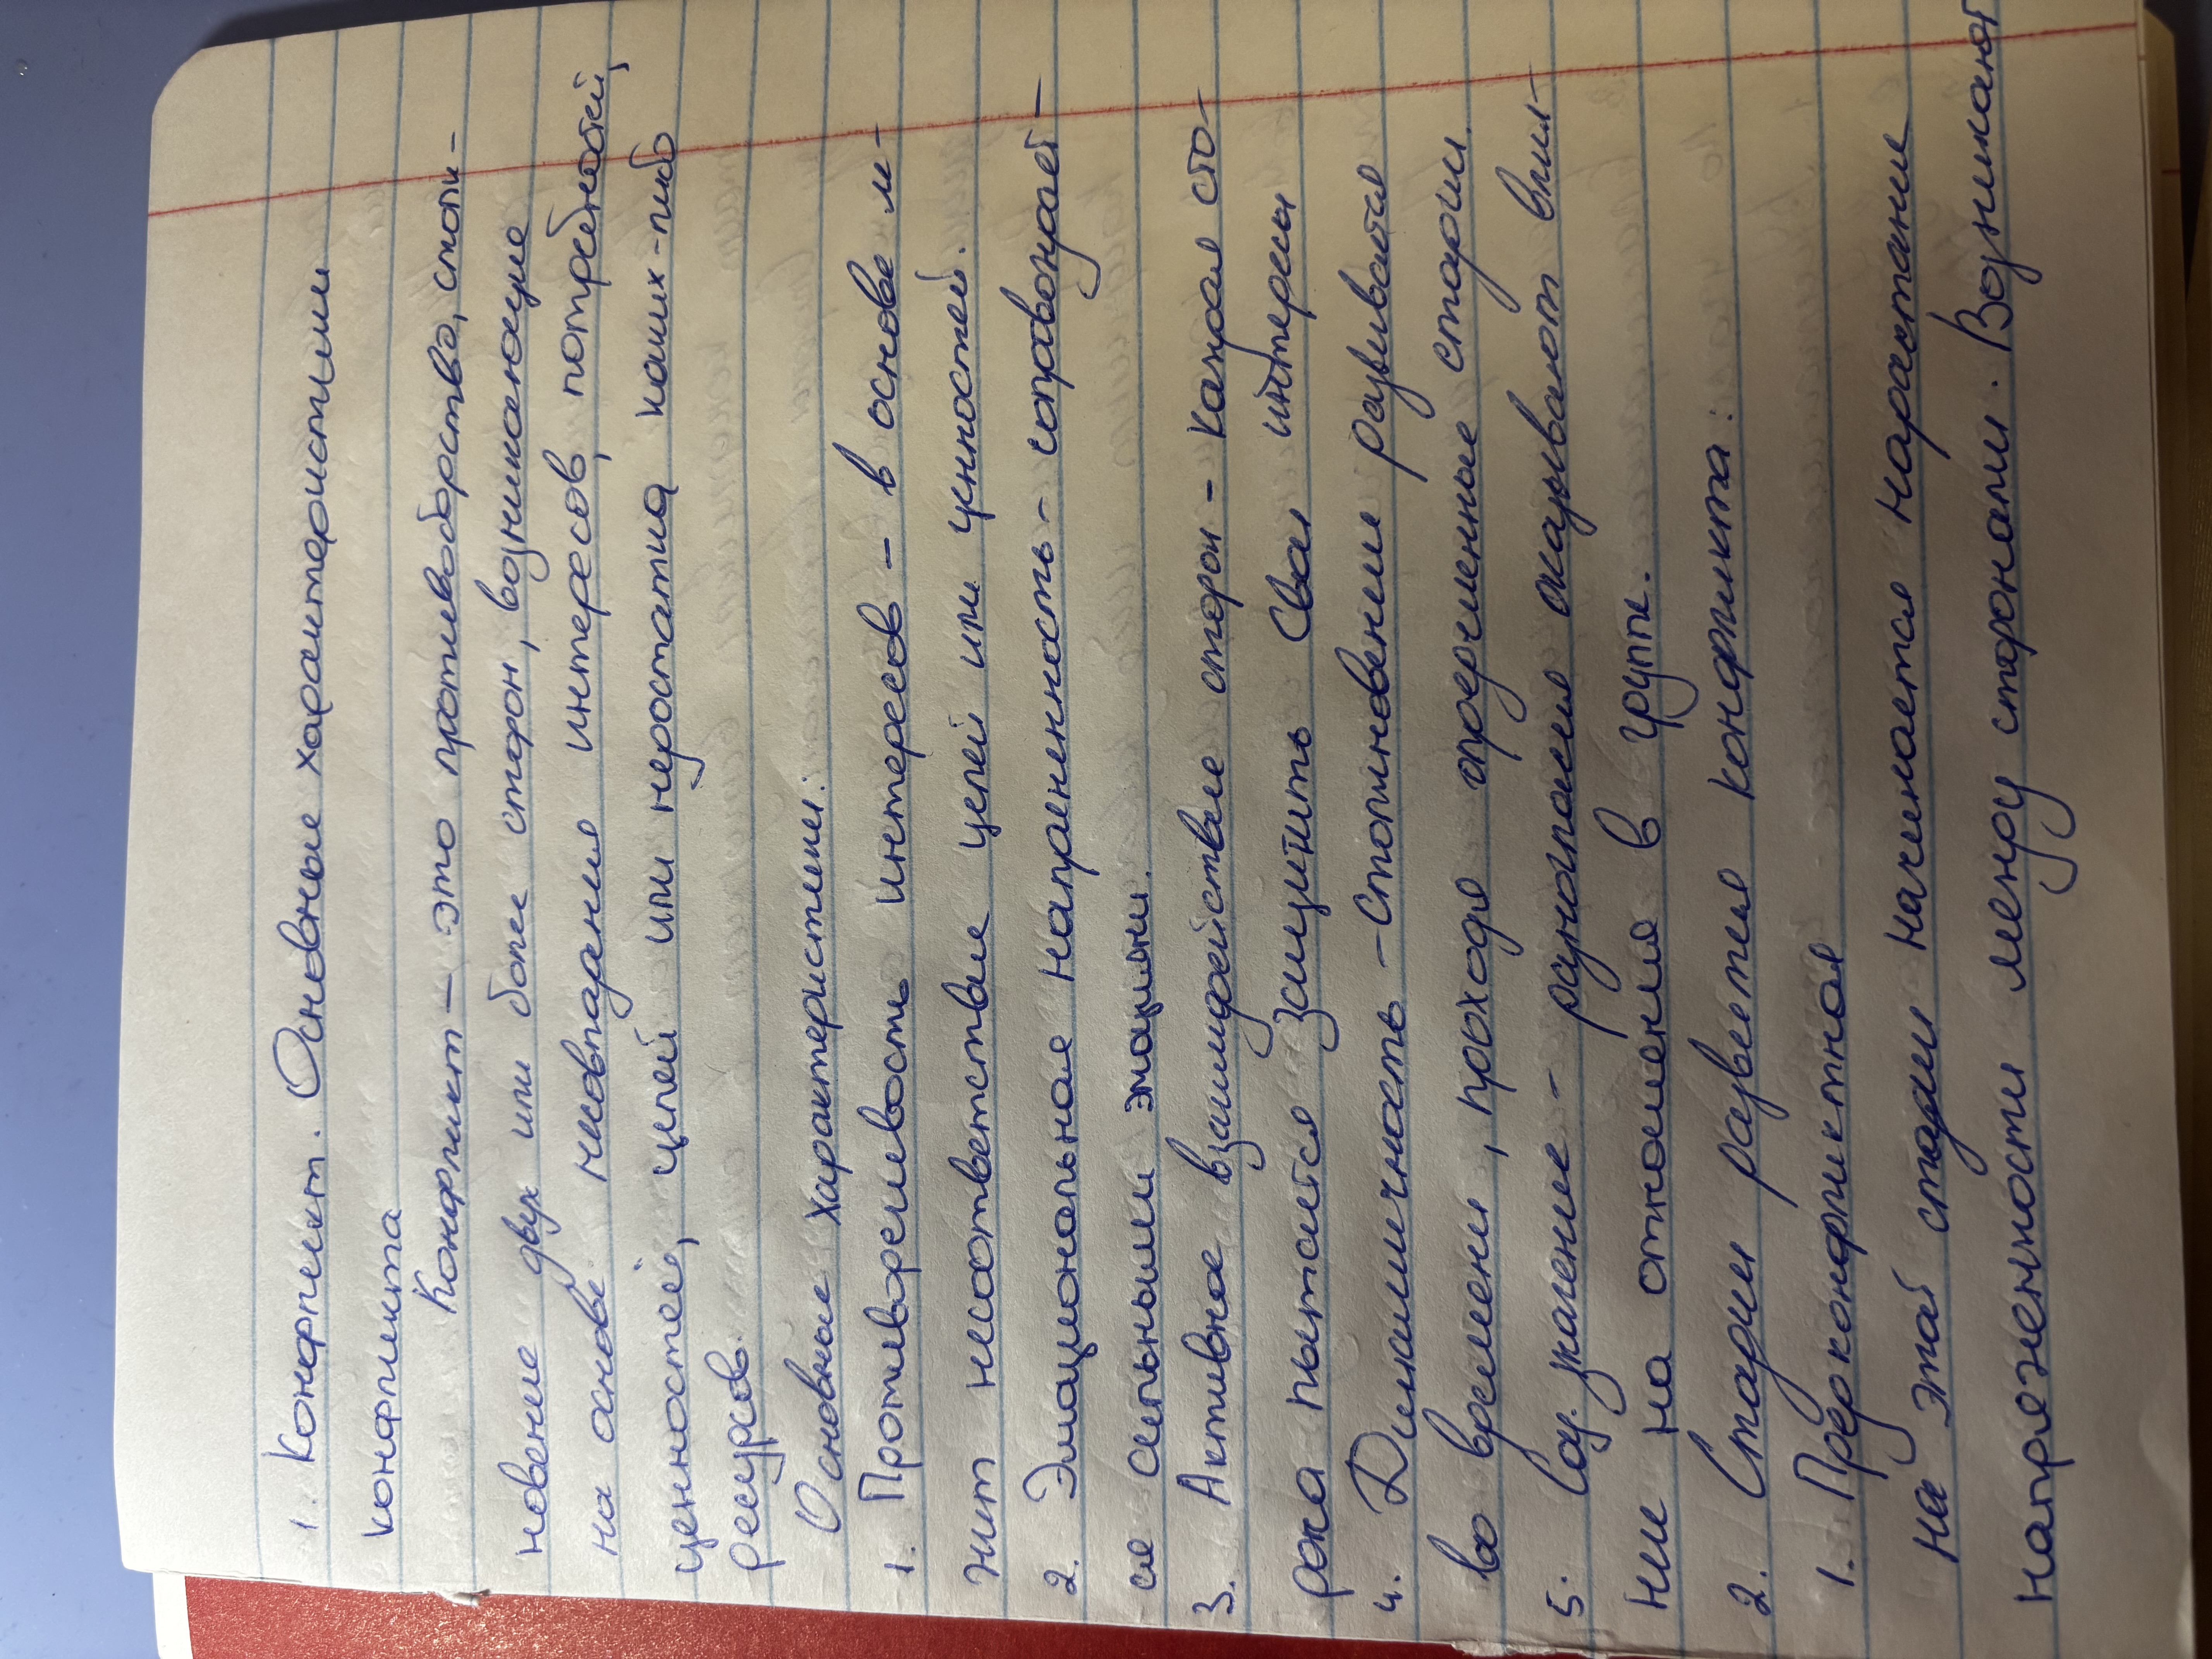 1. Конфликт. Основные характеристики
конфликта
Конфликт – это противоборство, столк-
новение двух или более сторон, возникающие
на основе несовпадения интересов, потребностей,
ценностей, целей или недостатка каких-либо
ресурсов.
Основные характеристики:
1. Противоречивость интересов – в основе ле-
жит несоответствие целей или ценностей.
2. Эмоциональная напряженность – сопровождает-
ся сильными эмоциями.
3. Активное взаимодействие сторон – каждая сто-
рона пытается защитить свои интересы
4. Динамичность – столкновение развивается
во времени, проходя определенные стадии.
5. Соц. значение – разногласия оказывают влия-
ние на отношения в группе.
2. Стадии развития конфликта:
1. Предконфликтная
На этой стадии начинается нарастание
напряженности между сторонами. Возникают